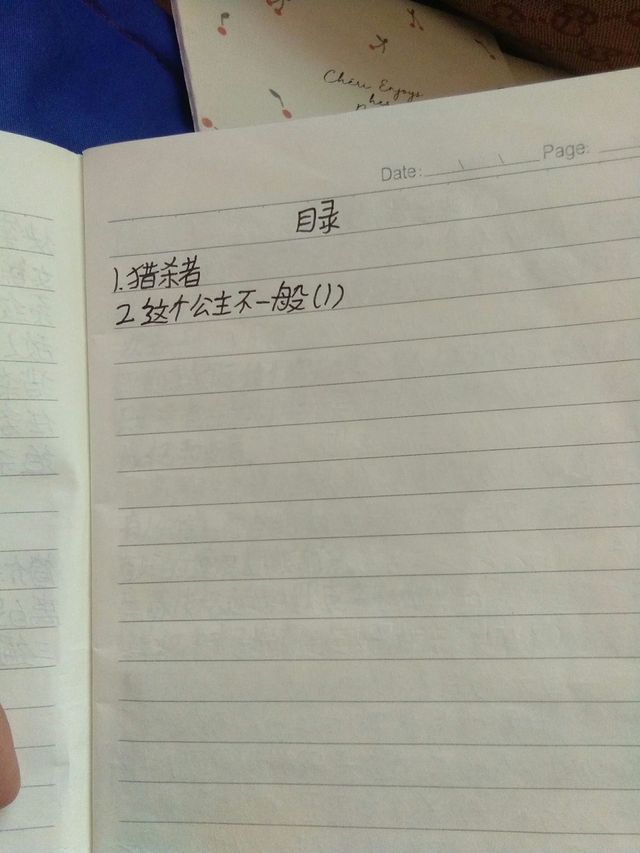 Chéri Enjoys
her
Date:
Page:
目录
1.猎杀者
2.这个公主不一般(1)